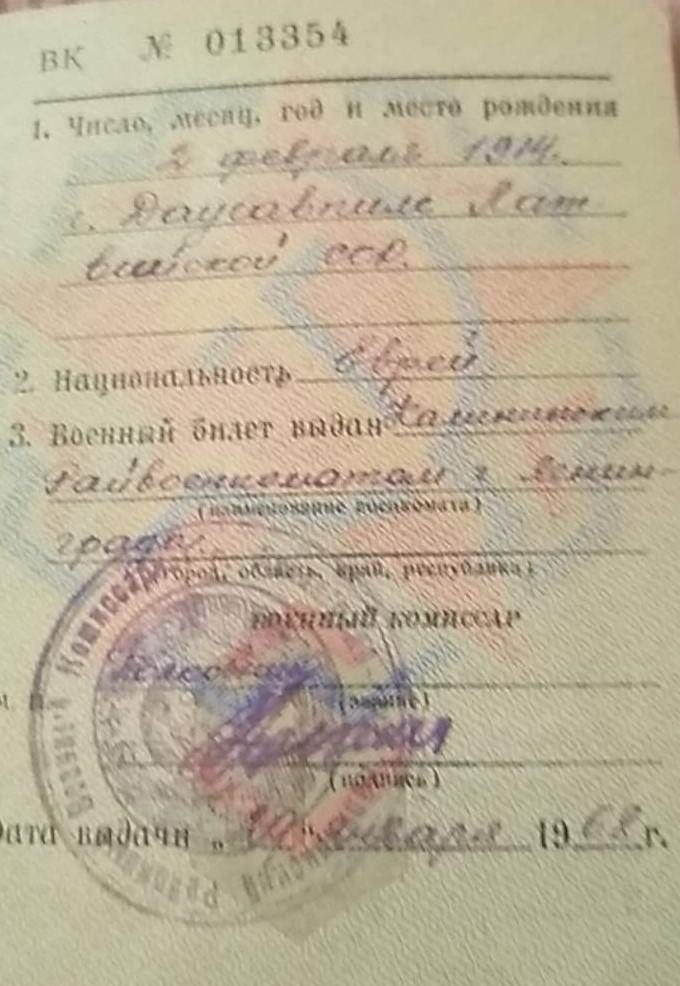 ВК № 013354
1. Число, месяц, год и место рождения
2 февраля 1914.
г. Даугавпилс Лат
вийской ССР.
2. Национальность еврей
3. Военный билет выдан Калининским
Райвоенкоматом г Ленин-
(наименование военкомата)
града.
(город, область, край, республика)
ВОЕННЫЙ КОМИССАР
(звание)
(подпись)
Дата выдачи „ " января 1968 г.